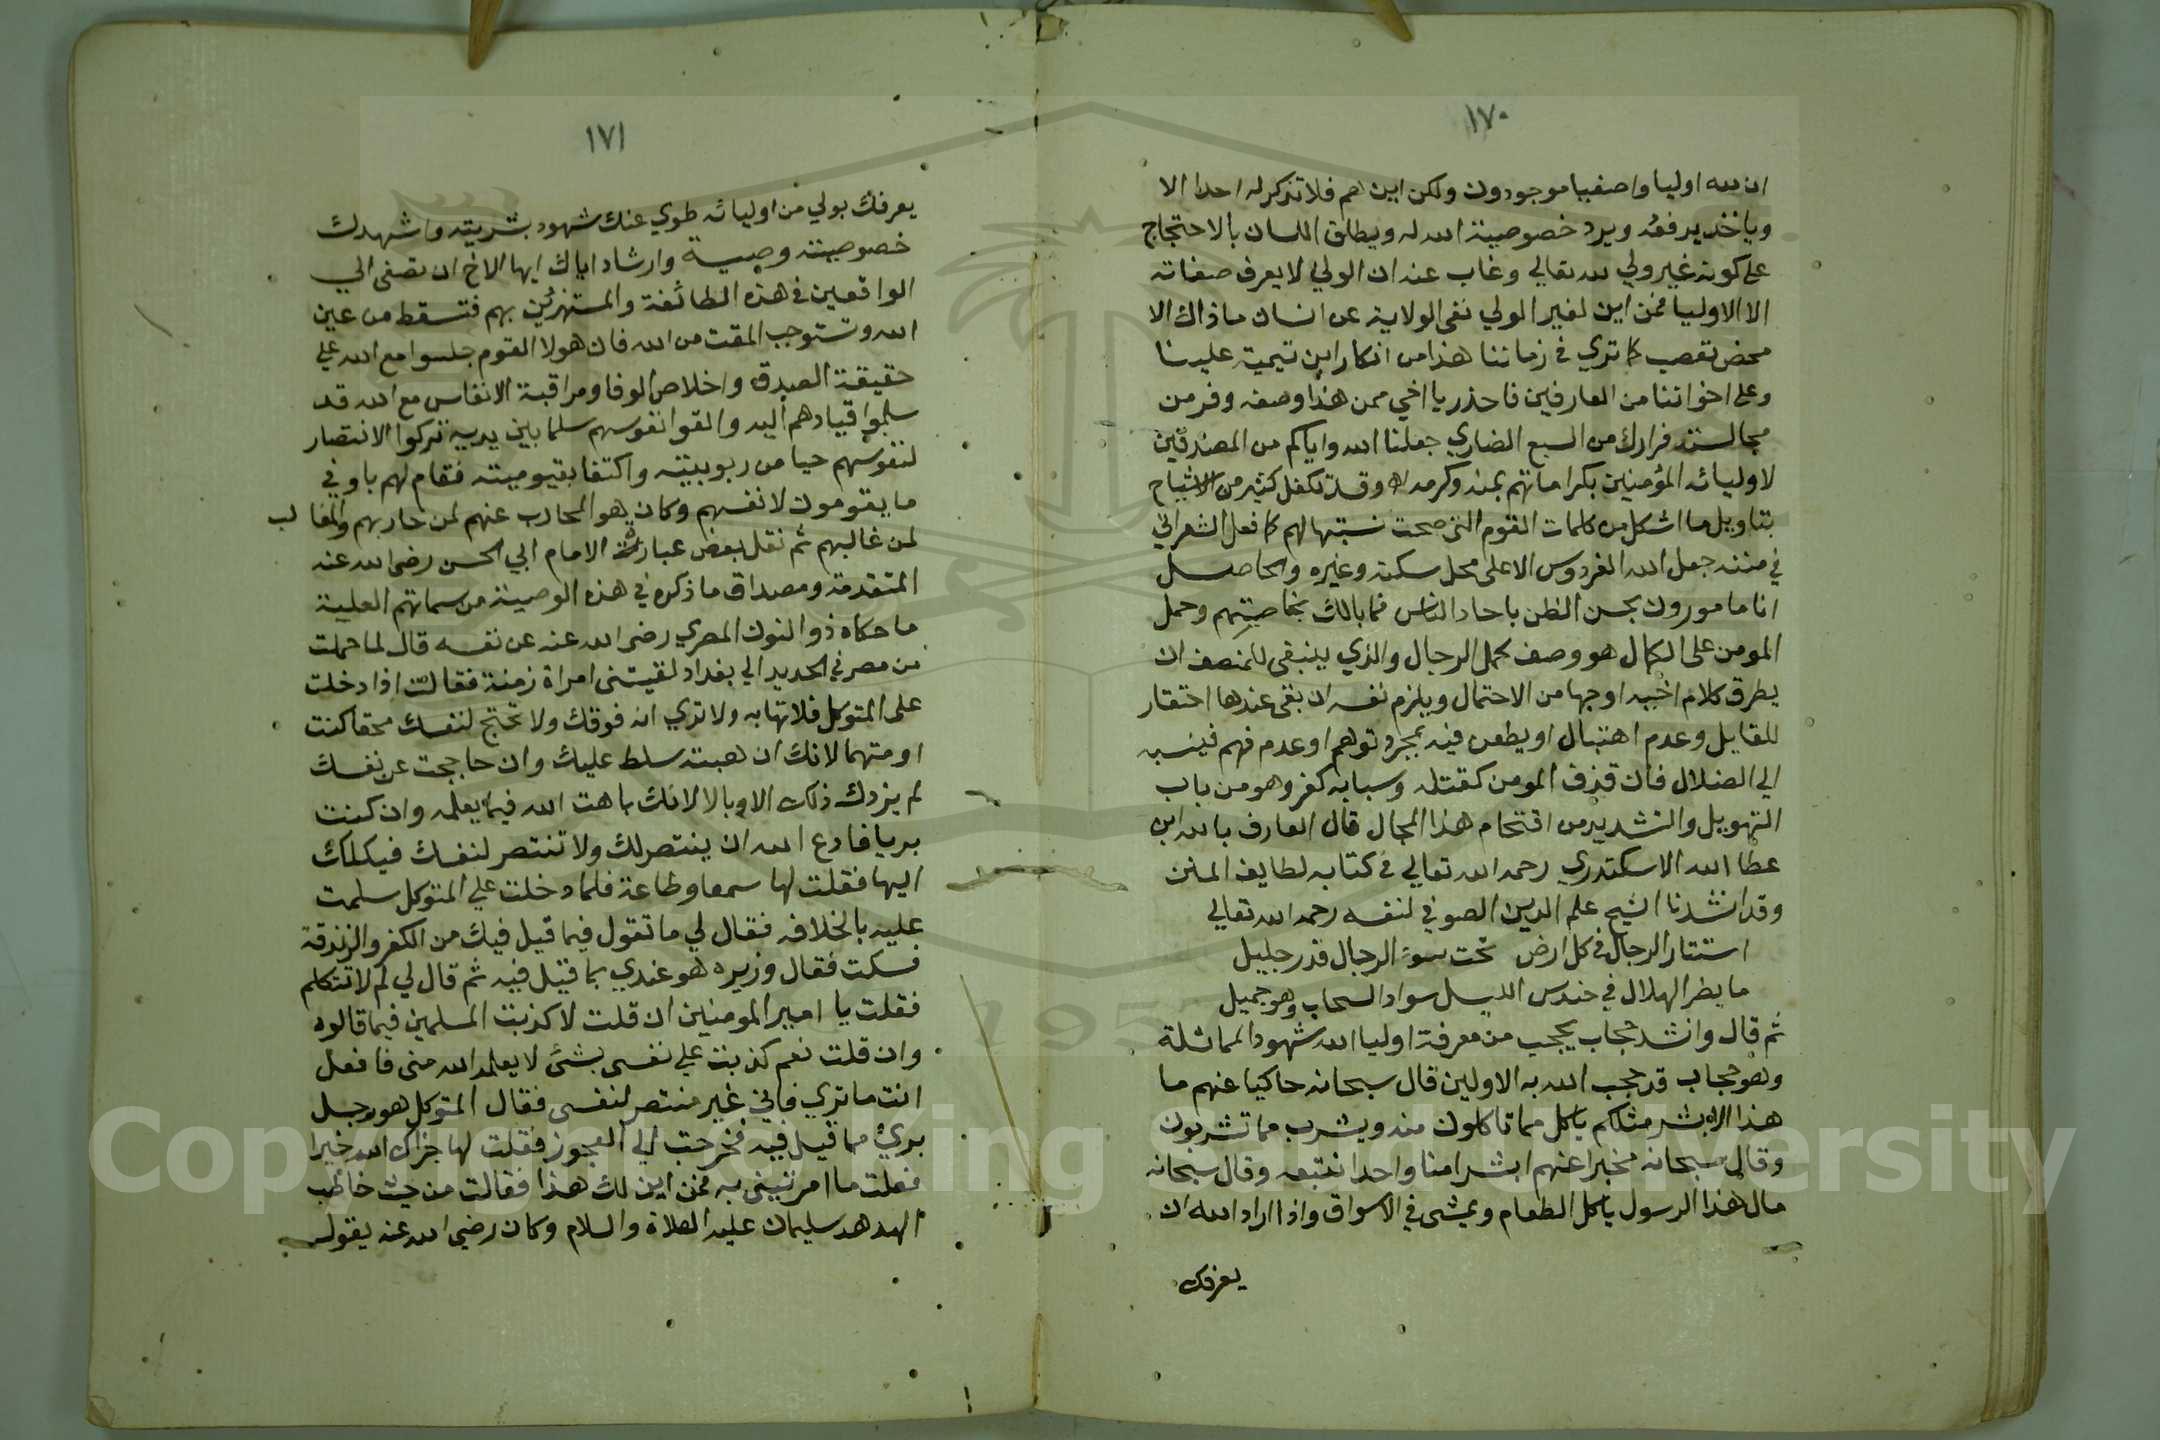 ١٧٠
ان لله اوليا واصفيا موجودون ولكن اين هم فلا تذكر له احدا الا
وياخذ يدفعه ويرد خصوصية الله له ويطلق اللسان بالاحتجاج
على كونه غير ولي لله تعالي وغاب عنه ان الولي لا يعرف صفاته
الا الاوليا فمن اين لغير الولي نفي الولاية عن انسان ما ذاك الا
محض تعصب كما تري في زماننا هذا من انكار ابن تيمية علينا
وعلى اخواننا من العارفين فاحذر يا اخي ممن هذا وصفه وفر من
مجالسته فرارك من السبع الضاري جعلنا الله واياكم من المصدقين
لاوليائه المؤمنين بكراماتهم بمنه وكرمه اه وقد تكفل كثير من الاشياخ
بتاويل ما اشكل من كلمات القوم التي صحت نسبتها لهم كما فعل الشعراني
في مننه جعل الله الفردوس الاعلى محل سكنه وغيره والحاصل
انا مامورون بحسن الظن باحاد الناس فما بالك بخاصيتهم وحمل
المومن على الكمال هو وصف كمل الرجال والذي ينبغي للمنصف ان
يطرق كلام اخيه اوجها من الاحتمال ويلزم نفسه ان بقى عندها احتقار
للقايل وعدم اهتبال او يطعن فيه بمجرد توهم او عدم فهم فينسبه
الي الضلال فان قذف المومن كقتله وسبابه كفر وهو من باب
التهويل والتشديد من اقتحام هذا المجال قال العارف بالله ابن
عطا الله الاسكندري رحمه الله تعالي في كتابه لطايف المنن
وقد انشدنا الشيخ علم الدين الصوفي لنفسه رحمه الله تعالي
استتار الرجال في كل ارض تحت سوء الرجال قدر جليل
ما يضر الهلال في حندس الليل سواد السحاب وهو جميل
ثم قال وانشد حجاب يحجب من معرفة اوليا الله شهود المماثلة
وهو حجاب قد حجب الله به الاولين قال سبحانه حاكيا عنهم ما
هذا الا بشر مثلكم ياكل مما تاكلون منه ويشرب مما تشربون
وقال سبحانه مخبرا عنهم ابشرا منا واحدا نتبعه وقال سبحانه
مال هذا الرسول ياكل الطعام ويمشي في الاسواق واذا اراد الله ان
يعرفك
١٧١
يعرفك بولي من اوليائه طوي عنك شهود بشريته واشهدك
خصوصيته وصية وارشاد اياك ايها الاخ ان تصغى الي
الواقعين في هذه الطائفة والمستهزئين بهم فتسقط من عين
الله وتستوجب المقت من الله فان هولا القوم جلسوا مع الله على
حقيقة الصدق واخلاص الوفا ومراقبة الانفاس مع الله قد
سلموا قيادهم اليه والقوا نفوسهم سلما بين يديه تركوا الانتصار
لنفوسهم حيا من ربوبيته واكتفا بقيوميته فقام لهم باوفي
ما يقومون لانفسهم وكان هو المحارب عنهم لمن حاربهم والمغالب
لمن غالبهم ثم نقل بعض عبارة الامام ابي الحسن رضى الله عنه
المتقدمة ومصداق ما ذكره في هذه الوصية من سماتهم العلية
ما حكاه ذو النون المصري رضى الله عنه عن نفسه قال لما حملت
من مصر في الحديد الي بغداد لقيتنى امراة زمنة فقالت اذا دخلت
على المتوكل فلا تهابه ولا تري انه فوقك ولا تحتج لنفسك محقا كنت
او متهما لانك ان هبته سلط عليك وان حاججت عن نفسك
لم يزدك ذلك الا وبالا لانك باهت الله فيما يعلمه وان كنت
بريا فادع الله ان ينتصر لك ولا تنتصر لنفسك فيكلك
اليها فقلت لها سمعا وطاعة فلما دخلت علي المتوكل سلمت
عليه بالخلافه فقال لي ما تقول فيما قيل فيك من الكفر والزندقة
فسكت فقال وزيره هو عندي بما قيل فيه ثم قال لي لم لا تتكلم
فقلت يا امير المومنين ان قلت لا كذبت المسلمين فيما قالوه
وان قلت نعم كذبت علي نفسى بشئ لا يعلمه الله منى فافعل
انت ما تري فاني غير منتصر لنفسى فقال المتوكل هو رجل
برئ مما قيل فيه فخرجت الي العجوز فقلت لها جزاك الله خيرا
فعلت ما امرتينى به فمن اين لك هذا فقالت من حيث خاطب
الهدهد سليمان عليه الصلاة والسلام وكان رضي الله عنه يقول
Copyright © King Saud University
1957